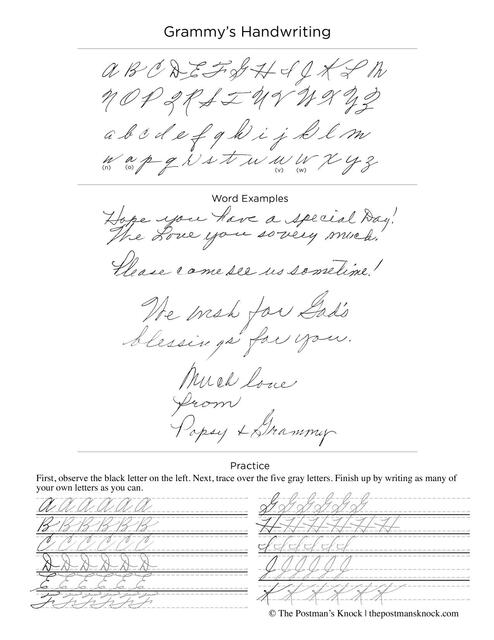 Grammy's Handwriting
A B C D E F G H I J K L M
N O P Q R S T U V W X Y Z
a b c d e f g h i j k l m
n o p q r s t u v w x y z
(n) (o) (v) (w)
Word Examples
Hope you have a special Day!
We Love you so very much.
Please come see us sometime!
We wish for God's
blessings for you.
Much love
from
Popsy & Grammy
Practice
First, observe the black letter on the left. Next, trace over the five gray letters. Finish up by writing as many of
your own letters as you can.
A A A A A A
B B B B B B
C C C C C C
D D D D D D
E E E E E E
F F F F F F
G G G G G G
H H H H H H
I I I I I I
J J J J J J
K K K K K K
© The Postman's Knock | thepostmansknock.com